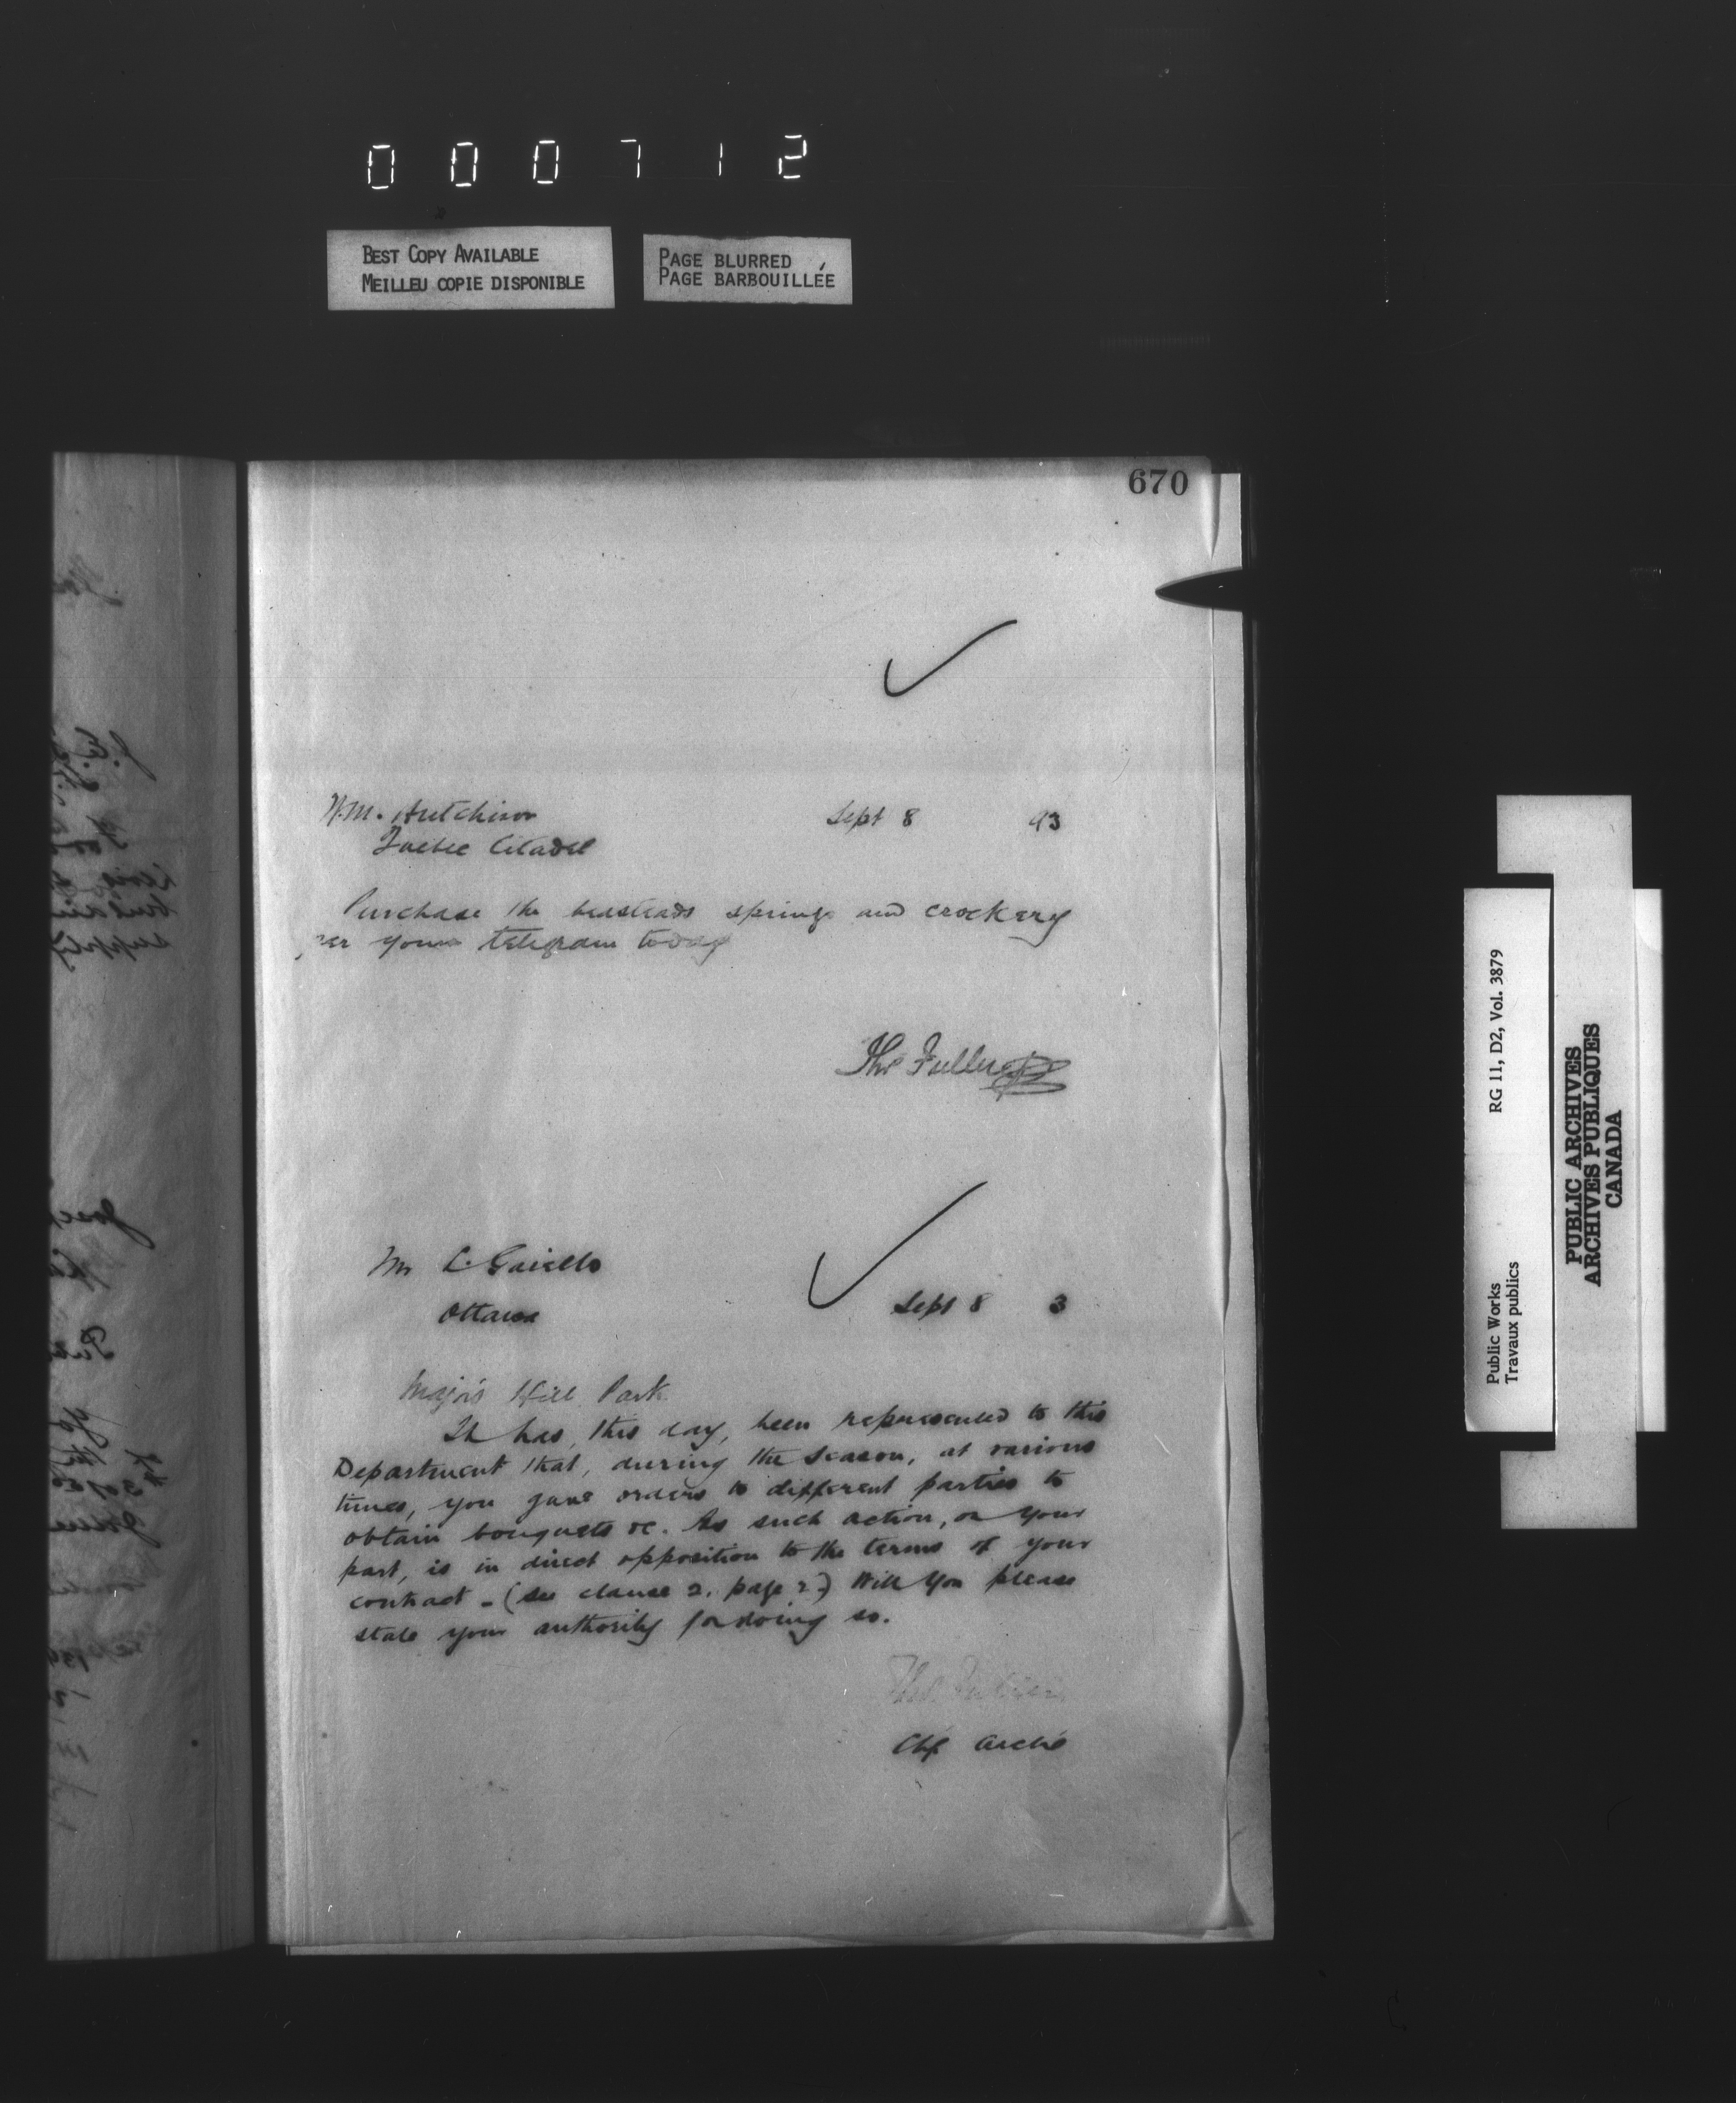 000712
BEST COPY AVAILABLE
MEILLEU COPIE DISPONIBLE
PAGE BLURRED
PAGE BARBOUILLÉE
670
W.M. Hutchison Sept 8 93
Quebec Citadel
Purchase the bedsteads springs and crockery
per your telegram today
Thos Fuller
Mr L. Gaiello
Ottawa Sept 8 3
Major's Hill Park
It has, this day, been represented to this
Department that, during the season, at various
times, you gave orders to different parties to
obtain bouquets &c. As such action, on your
part, is in direct opposition to the terms of your
contract - (see clause 2. page 2) Will you please
state your authority for doing so.
Thos. Fuller
Chf Archt
Public Works RG 11, D2, Vol. 3879
Travaux publics
PUBLIC ARCHIVES
ARCHIVES PUBLIQUES
CANADA